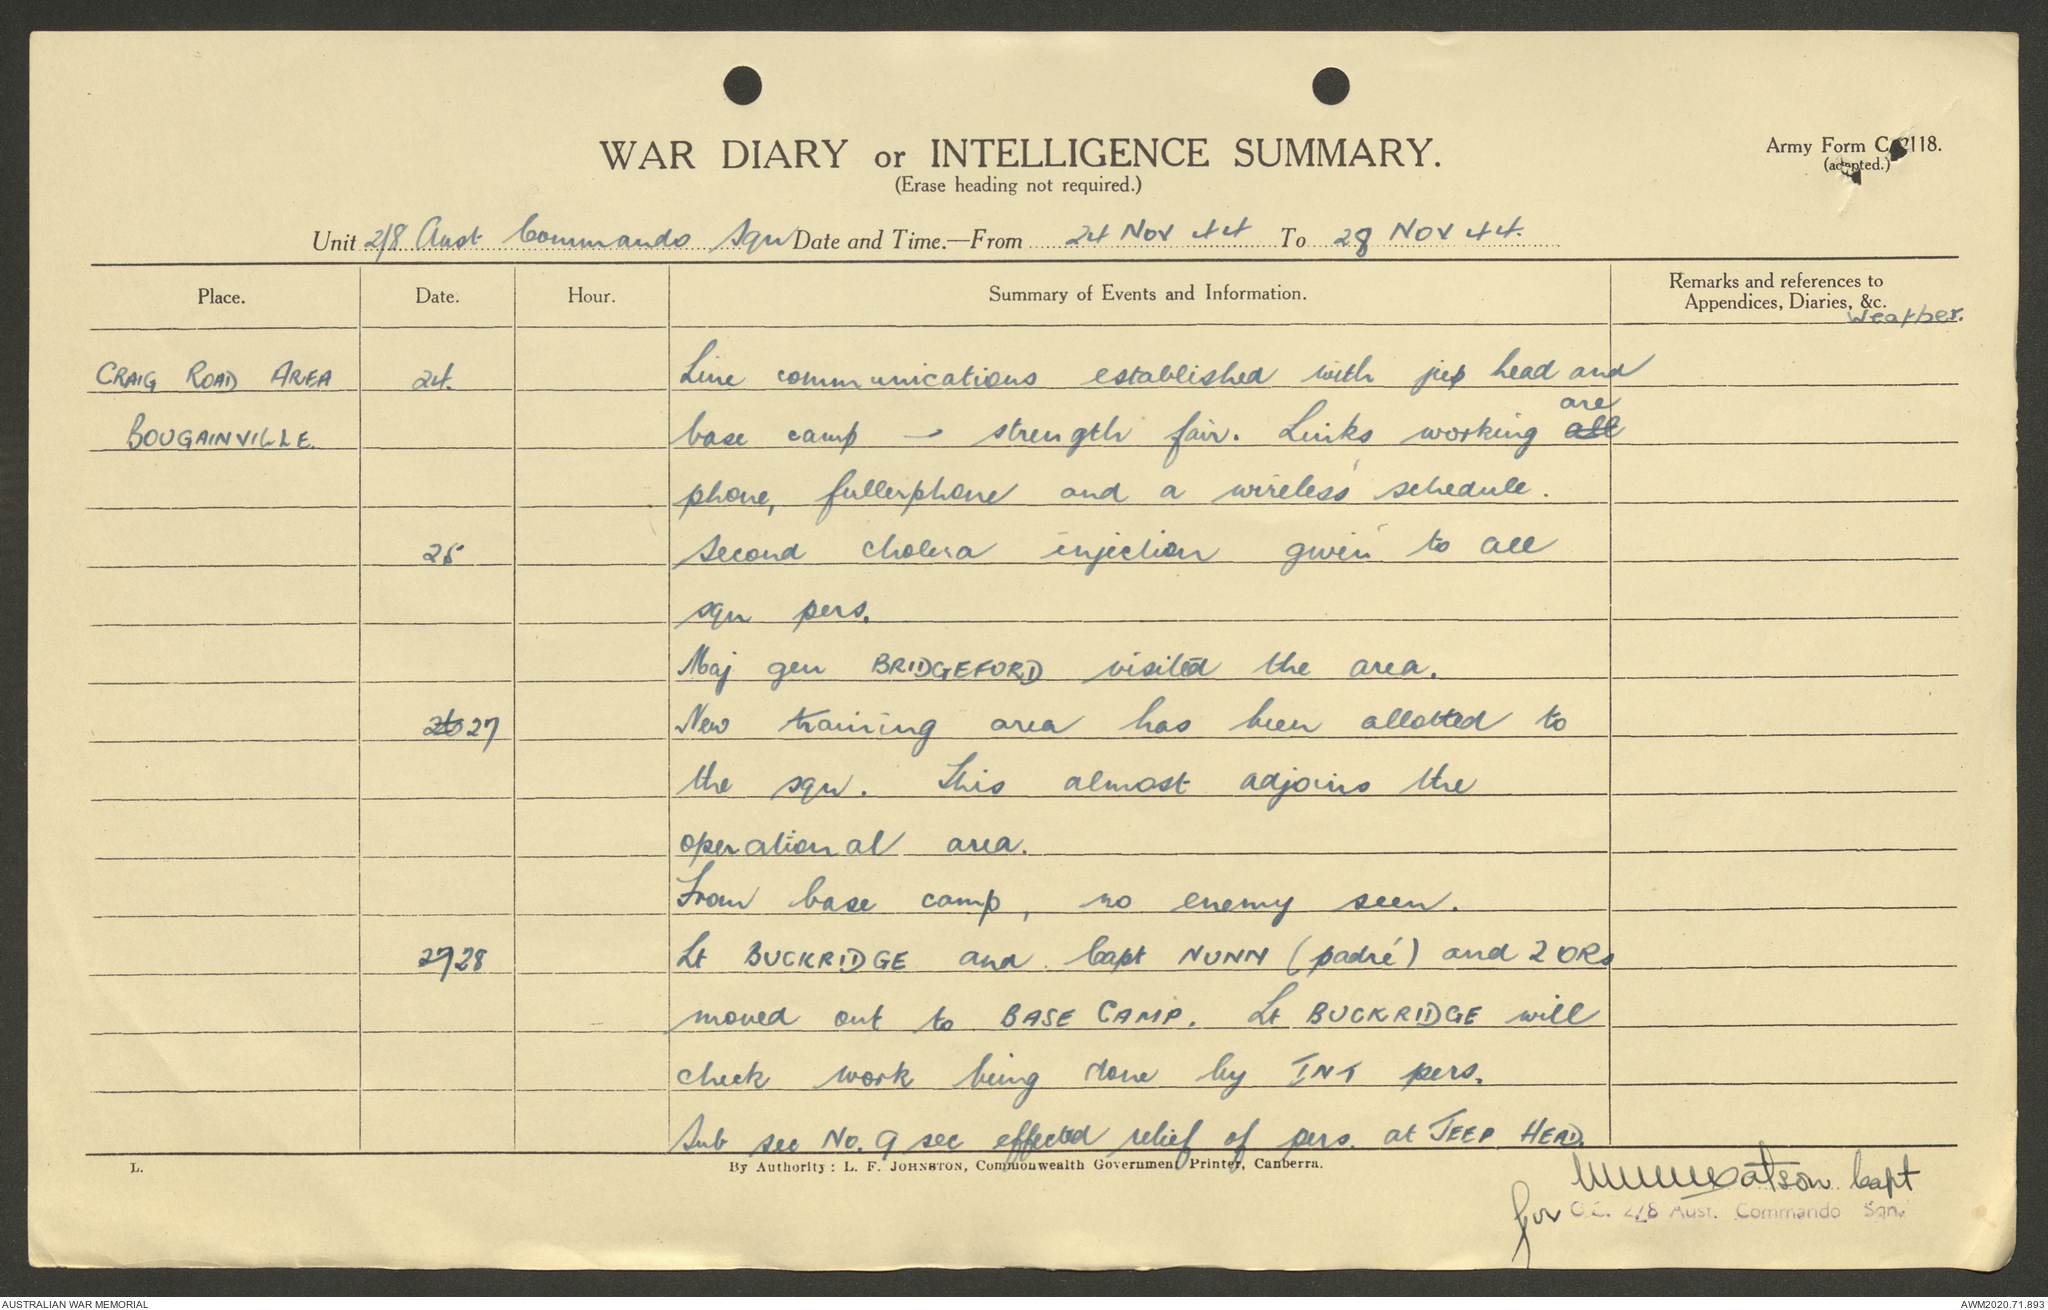 WAR DIARY or INTELLIGENCE SUMMARY.
(Erase heading not required.)
Army Form C.2118.
(adapted.)
Unit 2/8 Aust Commando Sqn Date and Time.—From 24 Nov 44 To 28 Nov 44.
Place. Date. Hour. Summary of Events and Information. Remarks and references to Appendices, Diaries, &c.
Weather.
CRAIG ROAD AREA 24. Line communications established with jeep head and
are
BOUGAINVILLE. base camp - strength fair. Links working all
phone, fullerphone and a wireless schedule.
25 Second cholera injection given to all
sqn pers.
Maj gen BRIDGEFORD visited the area.
26 27 New training area has been allotted to
the sqn. This almost adjoins the
operational area.
From base camp, no enemy seen.
27 28 Lt BUCKRIDGE and Capt NUNN (padré) and 2 ORs
moved out to BASE CAMP. Lt BUCKRIDGE will
check work being done by INT pers.
Sub sec No. 9 sec effected relief of pers. at JEEP HEAD.
L. By Authority: L. F. JOHNSTON, Commonwealth Government Printer, Canberra.
Watson Capt
for O.C. 2/8 Aust. Commando Sqn.
AUSTRALIAN WAR MEMORIAL AWM2020.71.893